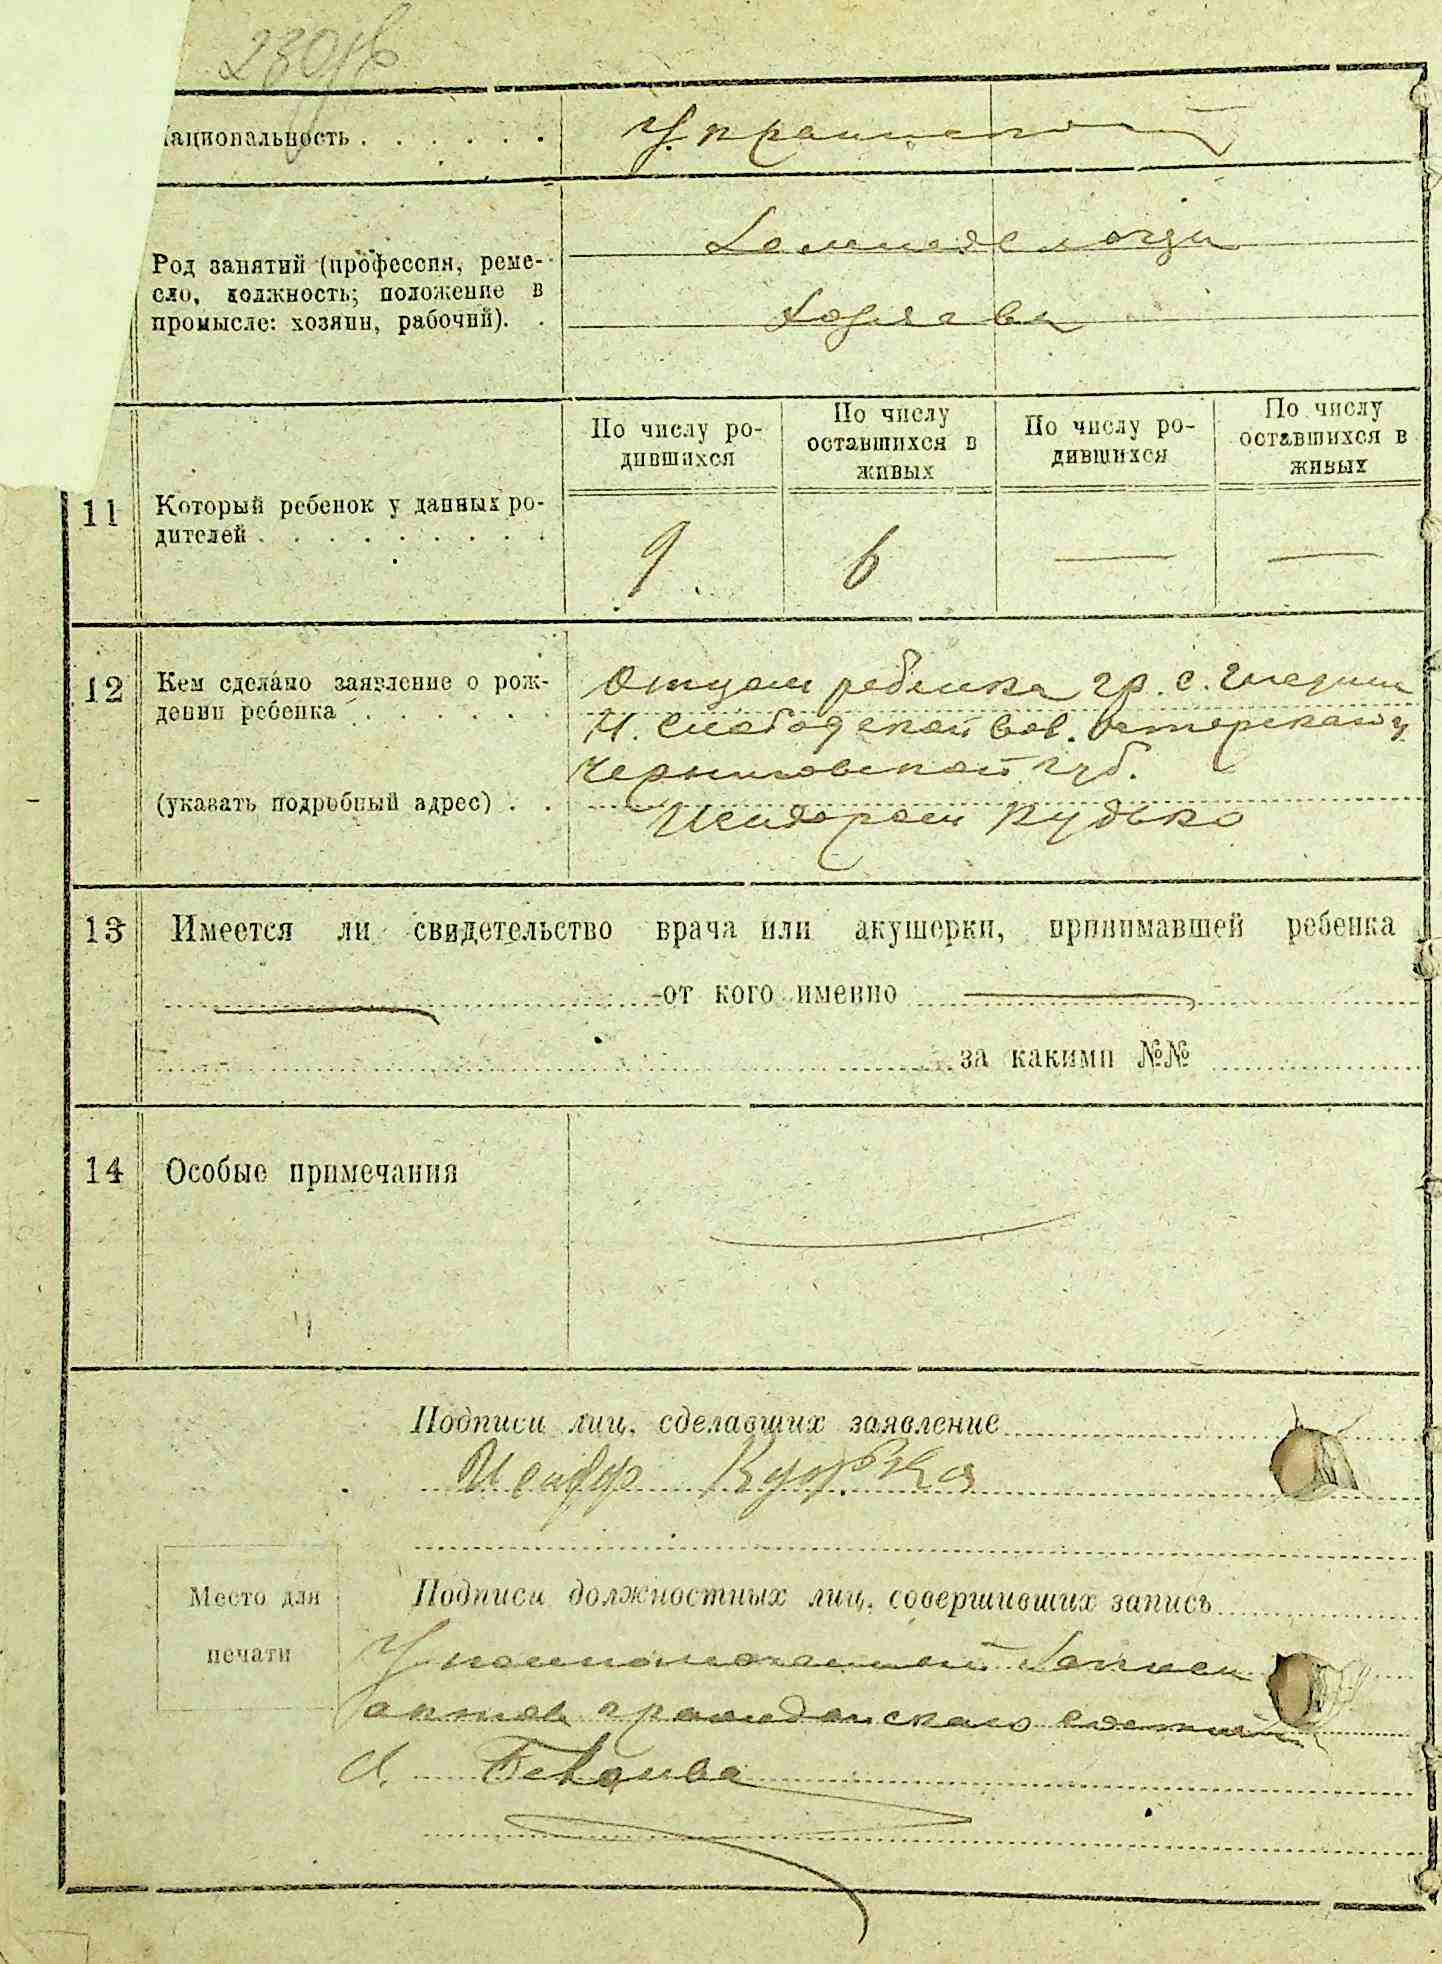 239
ациональность . . . . . . Украинской
Род занятий (профессия, реме-
сло, должность; положение в
промысле: хозяин, рабочий). .
Земледельцы
Хозяева
По числу ро-
дившихся
По числу
оставшихся в
живых
По числу ро-
дившихся
По числу
оставшихся в
живых
11 Который ребенок у данных ро-
дителей . . . . . . . . .
9 6 — —
12 Кем сделано заявление о рож-
дении ребенка . . . . . .
(указать подробный адрес) . .
Отцом ребенка гр. с.
Н. Слободской вол. Остерского у
Черниговской губ.
Исидором Кудько
13 Имеется ли свидетельство врача или акушерки, принимавшей ребенка
— от кого именно —
за какими №№
14 Особые примечания
Подписи лиц, сделавших заявление
Кудька
Место для
печати
Подписи должностных лиц, совершивших запись
Уполномоченный Записи
актов гражданского состояния
А.